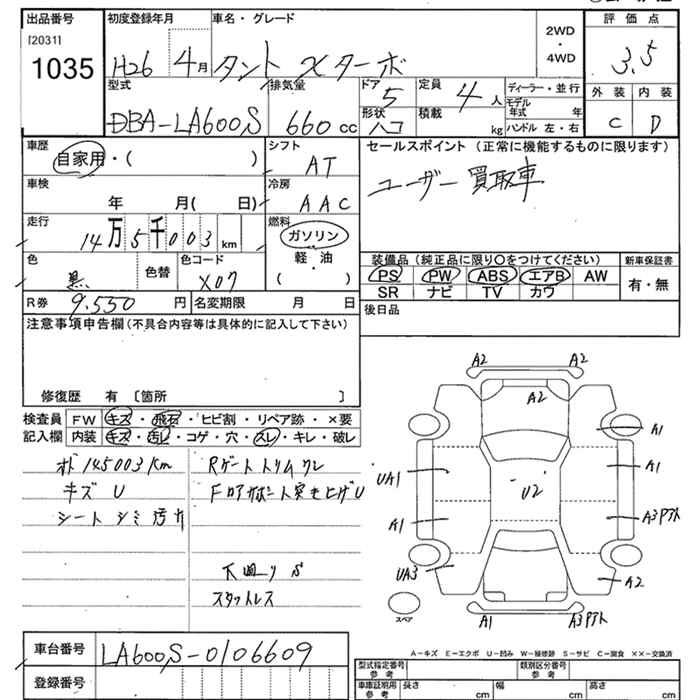 出品番号 初度登録年月 車名・グレード 2WD・4WD 評価点
[2031]
1035
H26 4月 タント Xターボ 3.5
型式 排気量 ドア 5 定員 4人 ディーラー・並行 外装 内装
DBA-LA600S 660cc 形状 ハコ 積載 kg モデル年式 年 C D
ハンドル 左・右
車歴 シフト セールスポイント (正常に機能するものに限ります)
自家用・( ) AT ユーザー買取車
車検 冷房
年 月( 日) AAC
走行 燃料
14万5千003km ガソリン
色 色替 色コード 軽・油 装備品(純正品に限り○をつけてください) 新車保証書
黒 X07 ( ) PS PW ABS エアB AW 有・無
SR ナビ TV カワ
R券 9.550円 名変期限 月 日 後日品
注意事項申告欄(不具合内容等は具体的に記入して下さい)
修復歴 有 〔箇所 〕
検査員 FW キズ・飛石・ヒビ割・リペア跡・×要
記入欄 内装 キズ・汚レ・コゲ・穴・スレ・キレ・破レ
145003km Rゲートトリムワレ
キズU 突き上げU
シート シミ汚れ
下廻りS
スタットレス
A2 A2
A2
A1
UA1 U2 A1
A1 A3アト
UA3 A2
スペア A1 A3アト
A-キズ E-エクボ U-凹み W-補修跡 S-サビ C-腐食 ××-交換済
車台番号 LA600S-0106609 型式指定番号 参考 類別区分番号 参考
登録番号 車庫証明用 参考 長さ cm 幅 cm 高さ cm